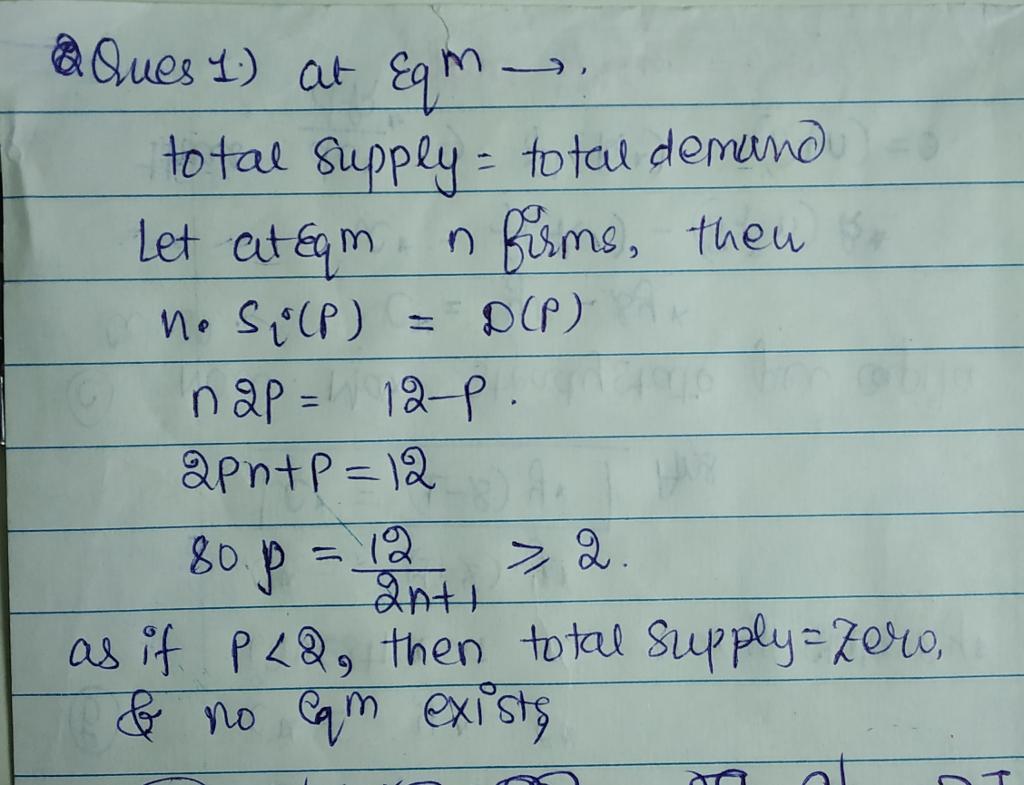 Ques 1.) at Eqm →.
total supply = total demand
Let at Eqm n firms, then
n. Si(P) = D(P)
n 2P = 12-P.
2Pn+P = 12
so p = 12/2n+1 ≥ 2.
as if P<2, then total supply = Zero,
& no eqm exists